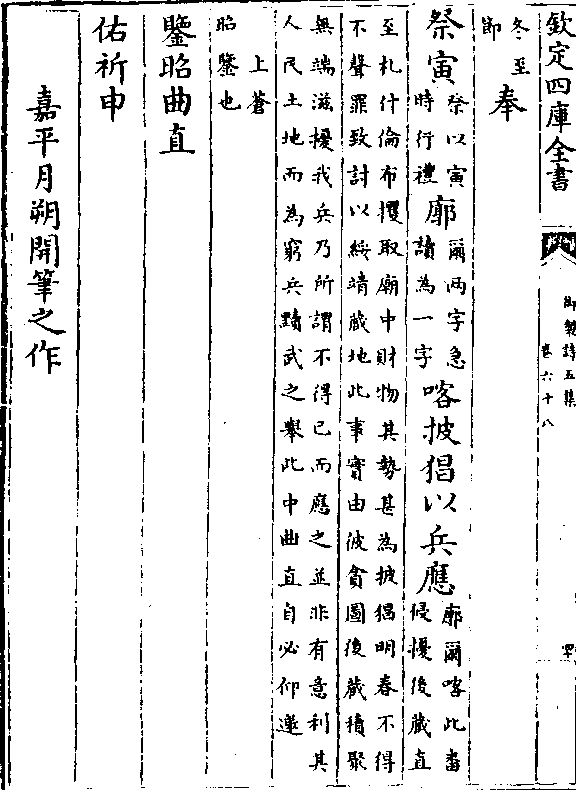 欽定四庫全書
御製詩五集
卷六十八
冬至
節
奉
祭寅
祭以寅
時行禮
廓
爾兩字急
讀為一字
喀披猖以兵應
廓爾喀此番
侵擾後藏直
至札什倫布攫取廟中財物其勢甚為披猖明春不得
不聲罪致討以綏靖藏地此事實由彼貪圖後藏積聚
無端滋擾我兵乃所謂不得已而應之並非有意利其
人民土地而為窮兵黷武之舉此中曲直自必仰邀
上蒼
昭鑒也
鑒昭曲直
佑祈申
嘉平月朔開筆之作